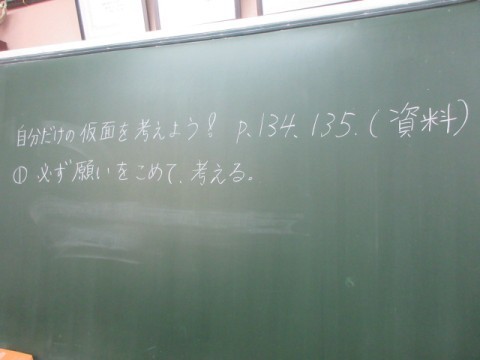 自分だけの仮面を考えよう! p.134、135.(資料)
① 必ず願いをこめて、考える。